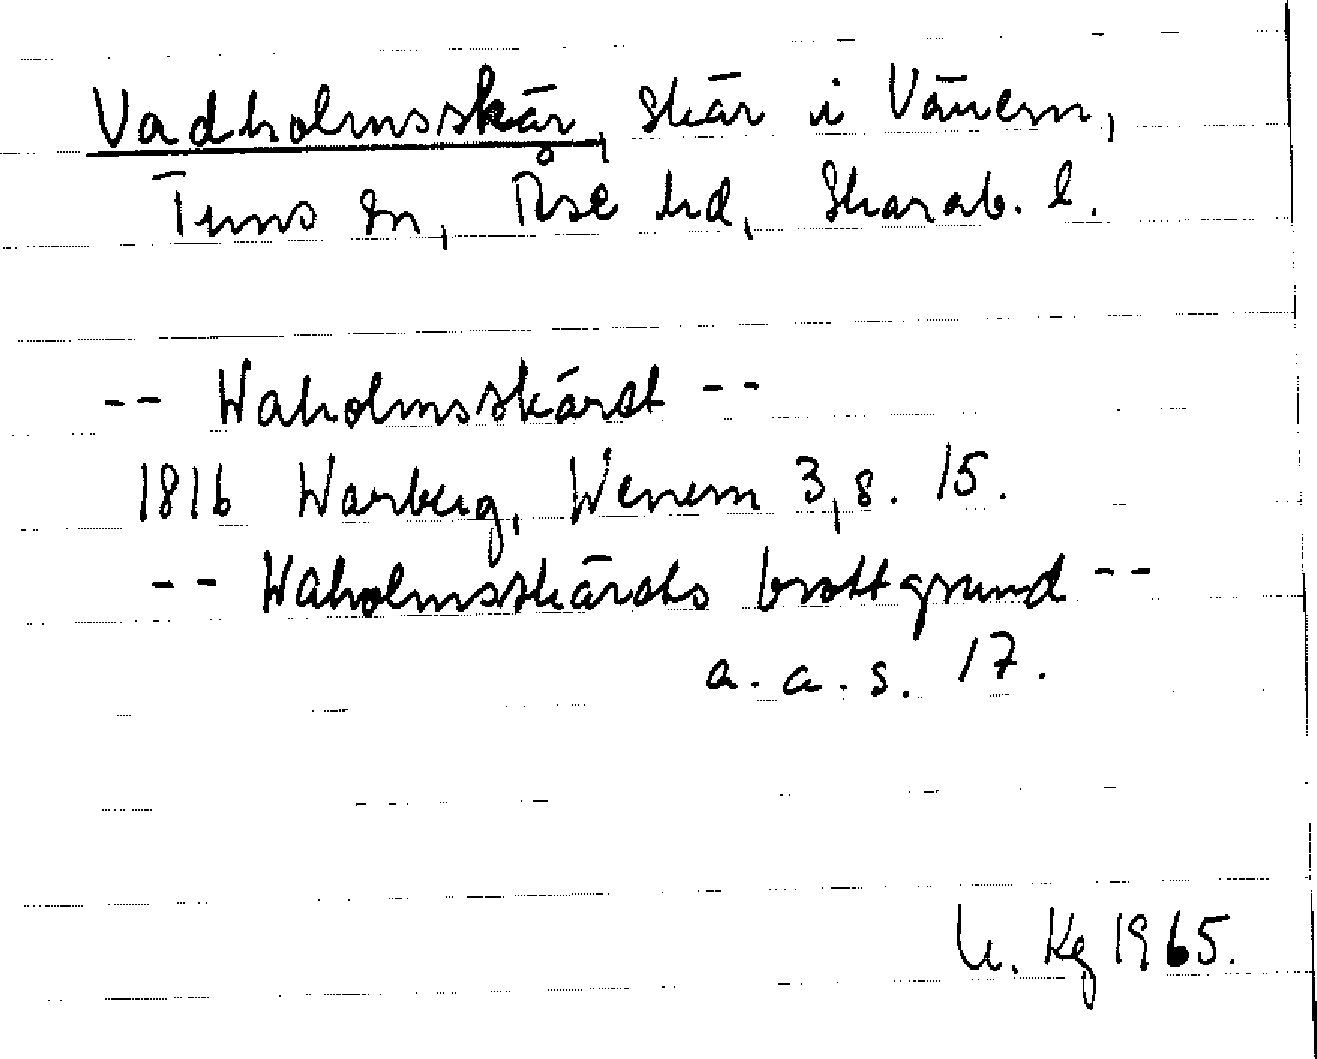 Vadholmsskär, skär i Vänern,
Tuns sn, Åse hd, Skarab. l.
-- Waholmsskäret --
1816 Warberg, Wenern 3, s. 15.
-- Waholmsskärets brottgrund --
a. a. s. 17.
U. Kg 1965.